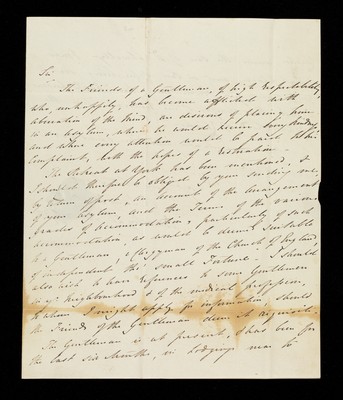 Sir,
The Friends of a Gentleman, of high respectability,
who, unhappily, has become afflicted with
aberration of the Mind, are desirous of placing him
in an Asylum, where he would receive every kindness,
and where every attention would be paid to his
Complaint, with the hopes of a restoration.
The Retreat at York has been mentioned, &
I should therefore be obliged by your sending me,
by return of post, an account of the Arrangement
of your Asylum, and the Terms of the various
grades of accommodation, particularly of such
accommodation, as would be deemed suitable
to a Gentleman, a Clergyman of the Church of England,
of independent tho' small Fortune. I should
also wish to have references to some Gentlemen
in yr. neighbourhood, & of the medical profession,
to whom I might apply for information, should
the Friends of the Gentleman deem it requisite.
The Gentleman is at present, & has been for
the last six Months, in Lodgings near to